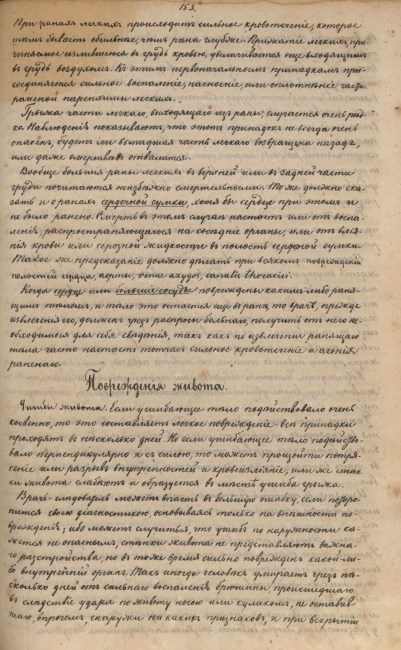 153.
При ранахъ легкихъ происходитъ сильное кровотеченіе, которое
тѣмъ бываетъ обильнѣе, чѣмъ рана глубже. Прижатіе легкихъ, при-
чиняемое излившеюся въ грудь кровью, увеличивается еще входящимъ
въ грудь воздухомъ. Къ этимъ первоначальнымъ припадкамъ при-
соединяется сильное воспаленіе, нагноеніе, или оплотнѣніе части
раненой паренхимы легкихъ.
Грыжа части легкаго, выходящаго изъ раны, случается очень рѣд-
ко. Наблюденія показываютъ, что этотъ припадокъ не всегда очень
опасенъ, будетъ ли выпавшая часть легкаго возвращена назадъ,
или даже омертвѣвъ отвалится.
Вообще большія раны легкихъ въ верхней или въ задней части
груди почитаются неизбѣжно смертельными. То же должно ска-
зать и о ранахъ сердечной сумки, хотя бы сердце при этомъ и
не было ранено. Смерть въ этомъ случаѣ настаетъ или отъ воспа-
ленія, распространяющагося на сосѣдніе органы, или отъ изліян
нія крови или серозной жидкости въ полость сердечной сумки.
Такое же предсказаніе должно дѣлать при всякомъ поврежденіи
полостей сердца, аорты, vena azygos, canalis thoracici.
Когда сердце или большіе сосуды повреждены какимъ либо ранн-
ящимъ тѣломъ, и тѣло это остается еще въ ранѣ, то врачъ, прежде
извлеченія его, долженъ чрезъ распросы больнаго, получить отъ него не-
обходимыя для себя свѣдѣнія, такъ какъ по извлеченіи ранящаго
тѣла часто настаетъ тотчасъ сильное кровотеченіе и агонія
раненаго.
Поврежденія живота.
Ушибы живота. Если ушибающее тѣло подѣйствовало очень
косвенно, то это составляетъ легкое поврежденіе: всѣ припадки
проходятъ въ нѣсколько дней. Но если ушибающее тѣло подѣйство-
вало перпендикулярно и съ силою, то можетъ произойти потря-
сеніе или разрывъ внутренностей и кровоизліяніе, или же стѣн-
ки живота слабѣютъ и образуется въ мѣстѣ ушиба грыжа.
Врачъ слѣдовательно можетъ впасть въ большую ошибку, если потороп-
пится своею діагностикою, основываясь только на внѣшности по-
врежденія; ибо можетъ случиться, что ушибъ по наружности ка-
жется не опаснымъ, стѣнки живота не представляютъ важна-
го разстройства, но въ тоже время сильно поврежденъ какой-ли-
бо внутренній органъ. Такъ иногда человѣкъ умираетъ чрезъ нѣ-
сколько дней отъ сильнаго воспаленія брюшины, происшедшаго
въ слѣдствіе удара по животу ногою или кулакомъ, не оставив-
шаго, впрочемъ, снаружи никакихъ признаковъ, и при вскрытіи